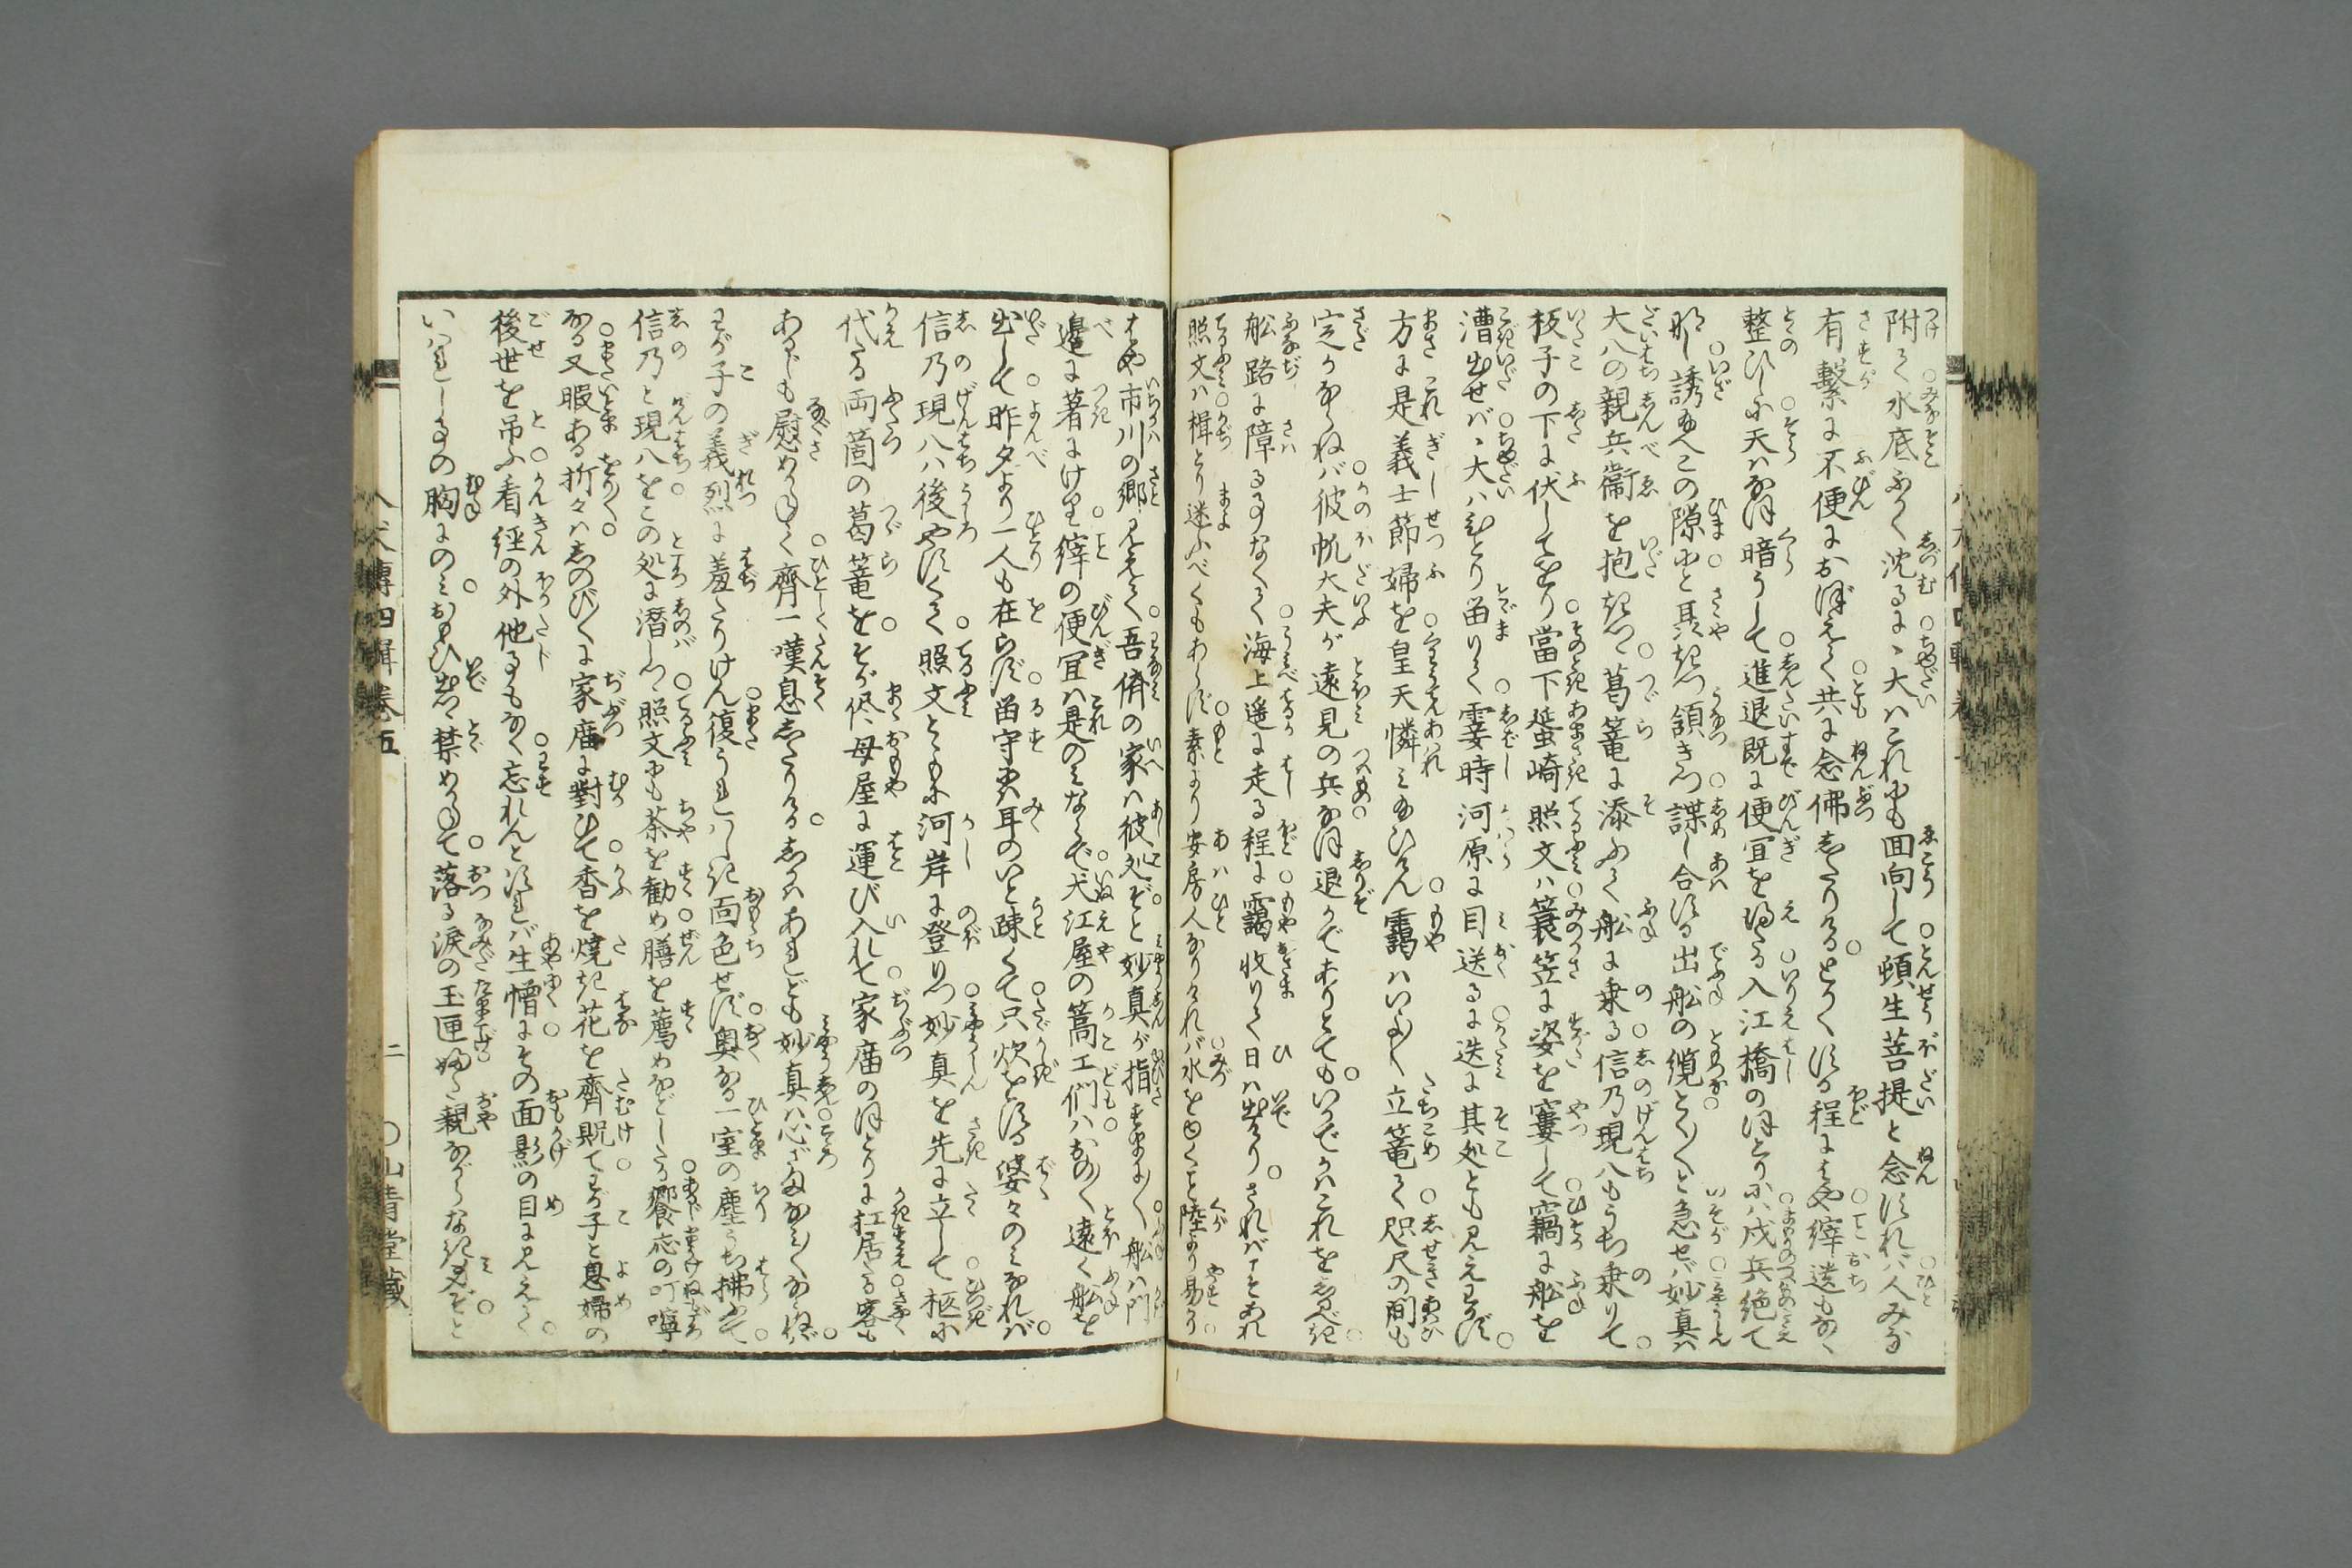 附て水底ふかく沈るに、大ハこれにも回向して頓生菩提と念ずれバ人みな
有繋に不便におぼえて共に念佛したりける。とかくする程にはや縡遺もなく
整ひしに天ハなほ暗うして進退既に便宜を得たる入江橋のほとりにハ戍兵絶て
那し誘給へこの隙にと具起つ頷きつ謀し合する出舩の纜とく〳〵と急せバ妙真ハ
大八の親兵衞を抱きつ。葛篭に添ふて舩に乗る信乃現八もうち乗りて
板子の下に伏してをり當下蜑崎照文ハ簑笠に姿を窶して竊に舩を
漕出せバ、大ハひとり畄りて霎時河原に目送るに迭に其処とも見えわかず。
方に是義士節婦を皇天憐み給ひけん靄ハいよ〳〵立篭て咫尺の間も
定かならねバ彼帆大夫が遠見の兵なほ退かでありとても。いかでかはこれをしるべき。
舩路に障る事なくて海上遥に走る程に靄收りて日ハ出たり。されバまたあれ
照文ハ楫とり迷ふべくもあらず素より安房人なりけれバ水をゆくこと陸より易かり
はや市川の郷見えて。吾儕の家ハ彼処ぞと妙真が指すまに〳〵舩ハ門
邊に著にけり縡の便宜ハ是のみならで犬江屋の篙工們ハおの〳〵遠く舩を
出して昨夕より一人も在らず畄守せしハ耳のいと疎くて只炊をする婆々のみなれバ。
信乃現八ハ後やすくて照文とゝもに河岸に登りつ妙真を先に立して柩に
代たる両箇の葛篭をそが侭母屋に運び入れて家廟のほとりに扛居たる客も
あるじも慰めかねて齊一嘆息したりける。しかハあれども妙真ハ心ざまなみ〳〵ならねバ。
わが子の義烈に羞たりけん復うれハしき面色せず奥なる一室の塵うち拂ふて。
信乃と現八をこの処に潜しつ照文にも茶を勧め膳を薦めなどしたる饗応の叮嚀
なる又暇ある折々ハしのびて家廟に對ひて香を燒き花を齊貺てわが子と息婦の
後世を吊ふ看經の外他事もなく忘れんとすれバ生憎にその面影の目に見えて。
いはれし事の胸にのみおもひ出つ禁めかねて落る涙の玉匣ふたり親ながらなき身ぞと
八犬傳四輯卷五
二
〇山青堂藏